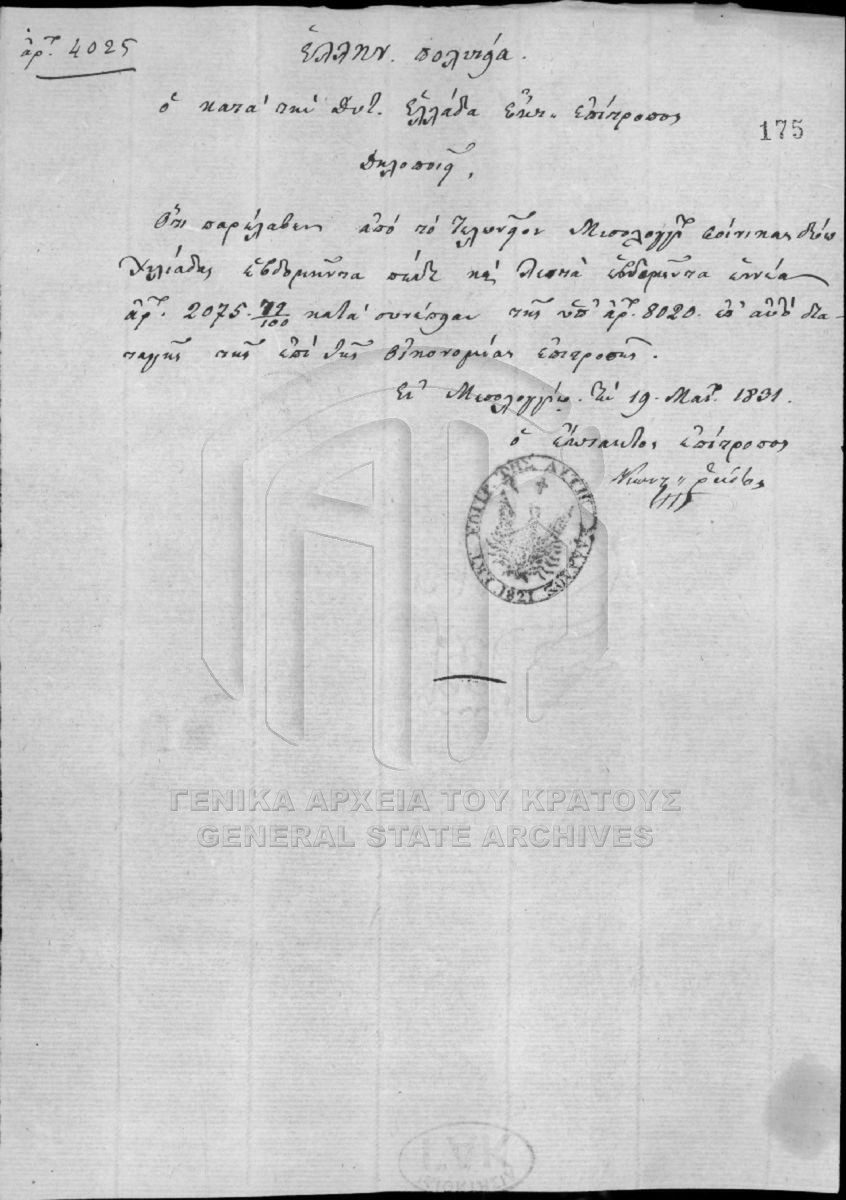 ἀρ. 4025
Ἑλλην. πολιτεία.
ὁ κατὰ τὴν Δυτ. Ἑλλάδα Ἔκτ. ἐπίτροπος
175
Δηλοποιεῖ,
Ὅτι παρέλαβεν ἀπὸ τὸ Τελωνεῖον Μεσολογγίου φοίνικας δύω
χιλιάδας ἑβδομήντα πέντε καὶ λεπτὰ ἑβδομήντα ἐννέα
ἀρ. 2075. 79/100 κατὰ συνέπειαν τῆς ὑπ' ἀρ. 8020. ἐπ' αὐτῷ δια-
ταγῆς τῆς ἐπὶ τῆς Οἰκονομίας ἐπιτροπῆς.
Ἐν Μεσολογγίῳ. τῇ 19. Μαΐ. 1831.
ὁ Ἔκτακτος ἐπίτροπος
ΕΚΤ. ΕΠΙΤΡ. ΤΗΣ ΔΥΤΙΚ. ΕΛΛΑΔΟΣ
1821
ΓΕΝΙΚΑ ΑΡΧΕΙΑ ΤΟΥ ΚΡΑΤΟΥΣ
GENERAL STATE ARCHIVES